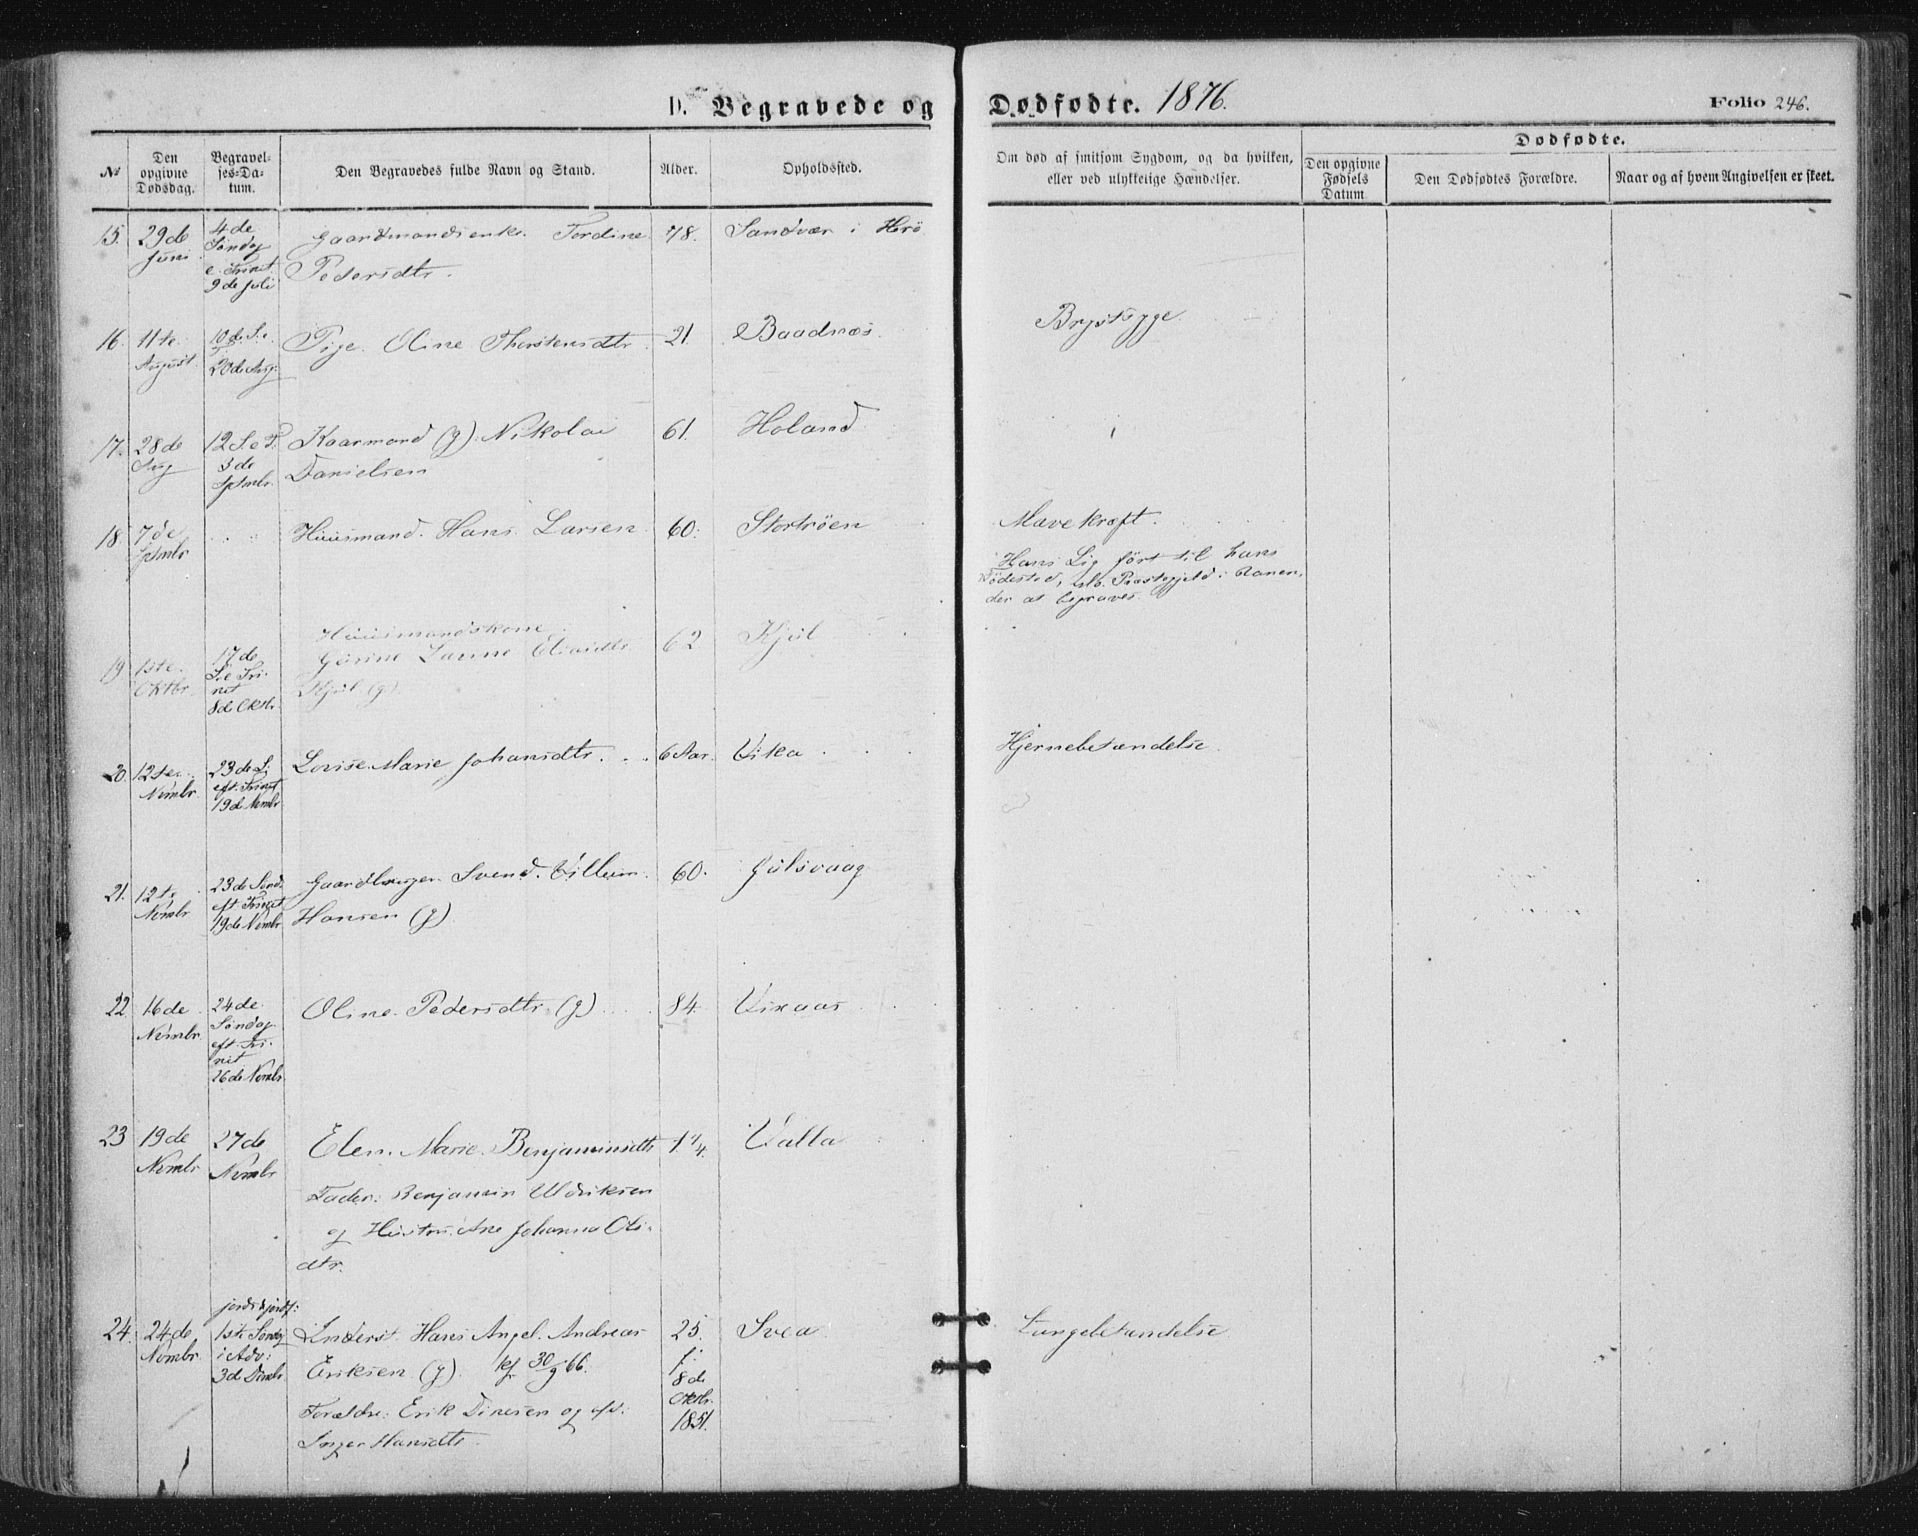 D. Begravede og Dødfødte. 1876. Folio 246.
№
Den opgivne Dødsdag.
Begravel-ses-Da-tum.
Den Begravedes fulde Navn og Stand.
Alder.
Opholdssted.
Om død af smitsom Sygdom, og da hvilken,
eller ved ulykkelige Hændelser.
Dødfødte.
Den opgivne Fødsels Datum
Den Dødfødtes Forældre.
Naar og af hvem Angivelsen er skeet.
15. 29de 4de Gaardmandsenke Ferdine 78. Sandvær i Herø
Juni Søndag
e. Trinit. Pedersdtr.
9de Juli
16. 11te 10de S. e. Pige Oline Thorstensdtr 21. Baadnæs Brystsyge
August T.
20de Aug.
17. 28de 12 S. e T. Kaarmand (g). Nikolai 61. Holand
Aug 3de Danielsen
Sptmbr.
18. 7de Huusmand Hans Larsen 60. Stortrøen Mavekræft.
Sptmbr
Hans Lig ført til hans
Fødested, Præstegjeld i Ranen,
der at begraves.
19. 1ste 17de Huusmandskone 62. Kjul
Oktbr. S. e Tri-
nit Kjul (g).
8de Oktbr.
20. 12te 23de S. Lovise Marie Johansdtr. 6 Aar. Vika Hjernebetændelse
Nvmbr eft. Trinit
19de Nvmbr
21. 12te 23de Sønd. Gaardbruger Svend Villum 60. Gulsvaag
Nvmbr eft. Trinit Hansen (g)
19de Nvmbr
22 16de 24de Oline Pedersdtr (g) 84.
Nvmbr Søndag
eft. Tri-
nit
26de Nvmbr
23 19de 27de Elen Marie Benjaminsdtr 1 1/4 Valla
Nvmbr Nvmbr
Fader: Benjamin Uldriksen
og Hustru Ane Johanna Ols-
dtr.
24. 24de 1ste Søndag Inderst Hans Angel Andreas 25. Svea Lungebetændelse
Nvmbr i Adv: Eriksen (g) kf 30/9 66. f:
3de Dcmbr 8de
Forældre: Erik Dinesen og Oktbr.
Inger Hansdtr. 1851.